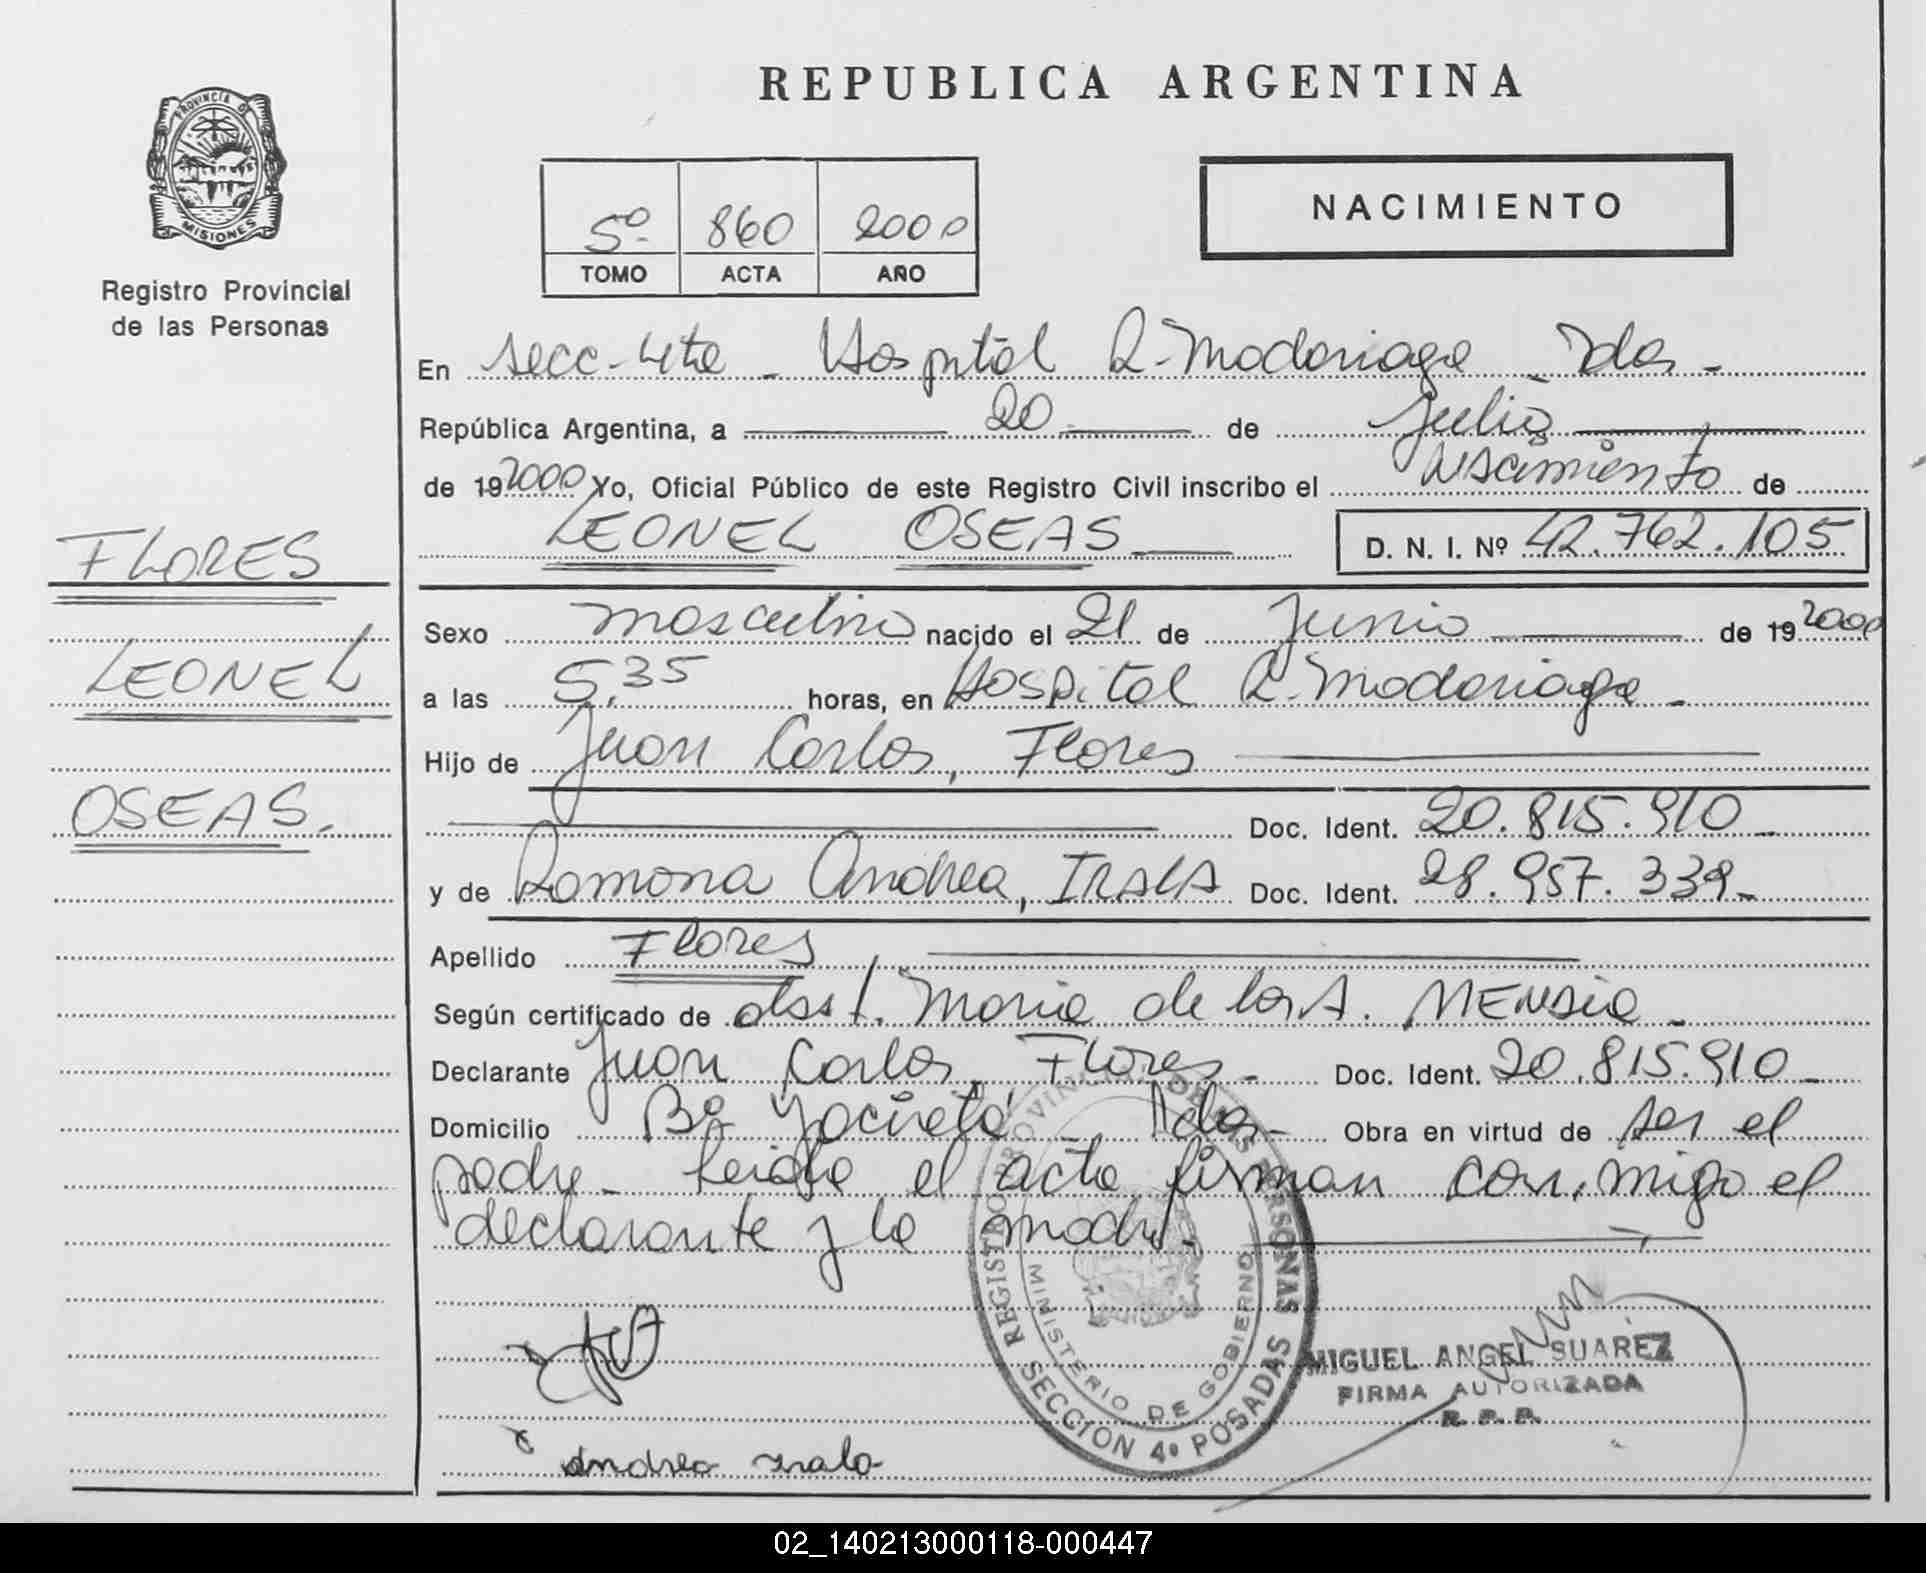 REPUBLICA ARGENTINA
PROVINCIA DE
MISIONES
Registro Provincial
de las Personas
5º 860 2000
TOMO ACTA AÑO
NACIMIENTO
En secc. 4ta - Hospital R. Madariaga Pdas -
República Argentina, a 20 de Julio
de 19 2000 Yo, Oficial Público de este Registro Civil inscribo el Nacimiento de
LEONEL OSEAS D. N. I. Nº 42.762.105
FLORES
LEONEL
OSEAS.
Sexo masculino nacido el 21 de Junio de 19 2000
a las 5,35 horas, en Hospital R. Madariaga -
Hijo de Juan Carlos, Flores
Doc. Ident. 20.815.910 -
y de Ramona Andrea, IRALA Doc. Ident. 28.957.339 -
Apellido Flores
Según certificado de obst. Maria de los A. MENDIA -
Declarante Juan Carlos, Flores - Doc. Ident. 20.815.910 -
Domicilio Bº Yacireta - Pdas - Obra en virtud de ser el
padre - Leida el acta, firman con migo el
declarante y la madre. -
REGISTRO PROVINCIAL DE LAS PERSONAS
MINISTERIO DE GOBIERNO
SECCION 4º POSADAS
MIGUEL ANGEL SUAREZ
FIRMA AUTORIZADA
R. P. P.
x Andrea Irala
02_140213000118-000447